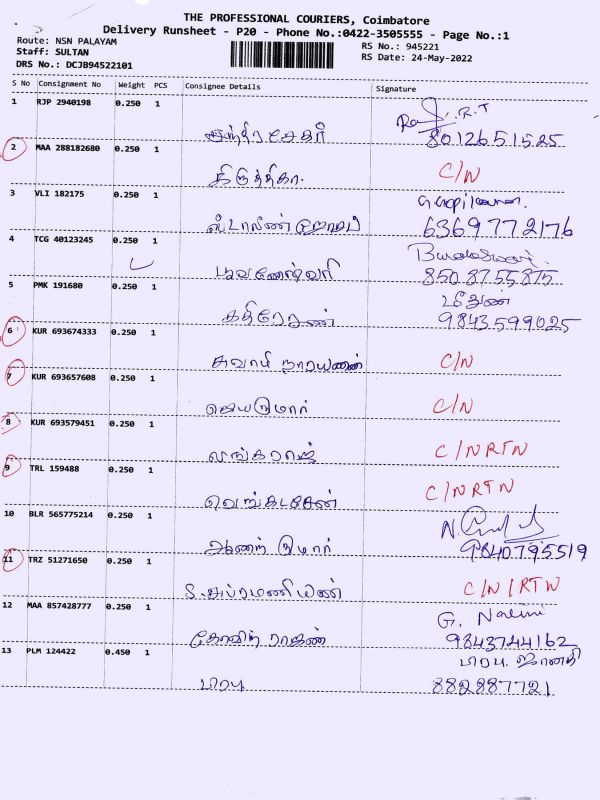 THE PROFESSIONAL COURIERS, Coimbatore
Delivery Runsheet - P20 - Phone No.:0422-3505555 - Page No.:1
Route: NSN PALAYAM
Staff: SULTAN
DRS No.: DCJB94522101
RS No.: 945221
RS Date: 24-May-2022
S No Consignment No Weight PCS Consignee Details Signature
1 RJP 2940198 0.250 1
8012651525
2 MAA 288182680 0.250 1
C/N
3 VLI 182175 0.250 1
6369772176
4 TCG 40123245 0.250 1
புவனேஷ்வரி 8508755875
5 PMK 191680 0.250 1
கதிரேசன் 9843599025
6 KUR 693674333 0.250 1
சுவாமி நாராயணன் C/N
7 KUR 693657608 0.250 1
ஜெயகுமார் C/N
8 KUR 693579451 0.250 1
லிங்கராஜ் C/N RTN
9 TRL 159488 0.250 1
வெங்கடேசன் C/N RTN
10 BLR 565775214 0.250 1
குமார் 9840795519
11 TRZ 51271650 0.250 1
S. சுப்ரமணியன் C/N/RTN
12 MAA 857428777 0.250 1
G. Nalini
கோவிந்தராஜன் 9843744162
13 PLM 124422 0.450 1
பிரபு ஜானகி
பிரபு 882887721